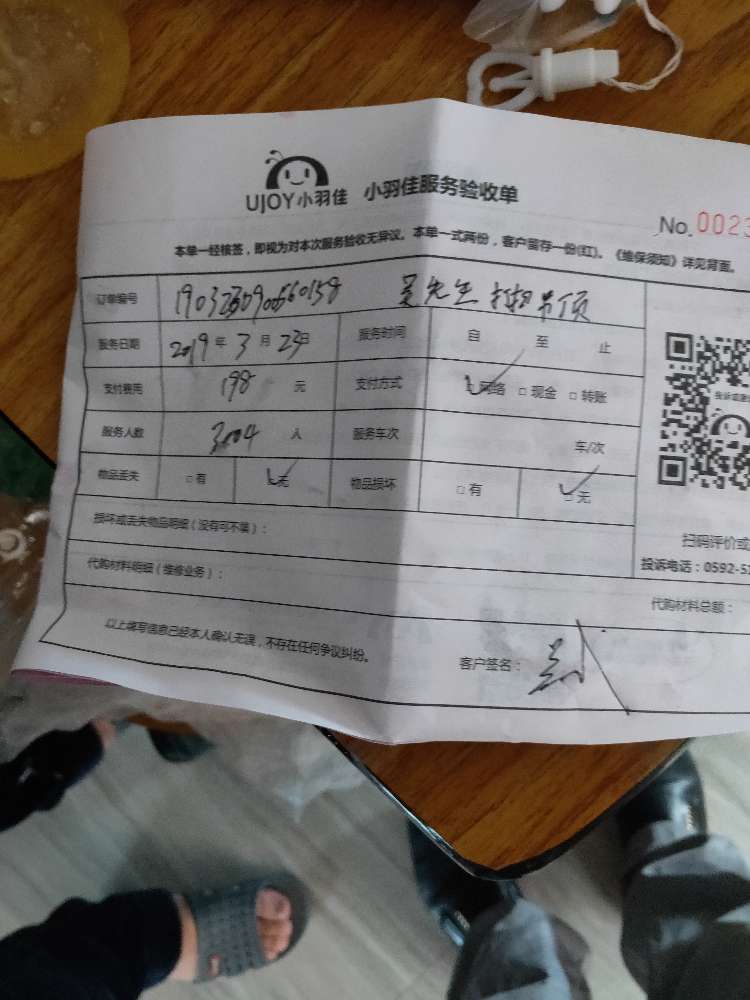 UJOY小羽佳 小羽佳服务验收单
No. 0023
本单一经核签，即视为对本次服务验收无异议。本单一式两份，客户留存一份(红)。《维保须知》详见背面。
订单编号 吴先生
服务日期 2019年3月23日 服务时间 自 至 止
支付费用 198 元 支付方式 □网络 □现金 □转账
服务人数 人 服务车次 车/次
物品丢失 □有 □无 物品损坏 □有 □无
损坏或丢失物品明细（没有可不填）：
扫码评价或
投诉电话：0592-51
代购材料明细（维修业务）：
代购材料总额：
以上填写信息已经本人确认无误，不存在任何争议纠纷。
客户签名：